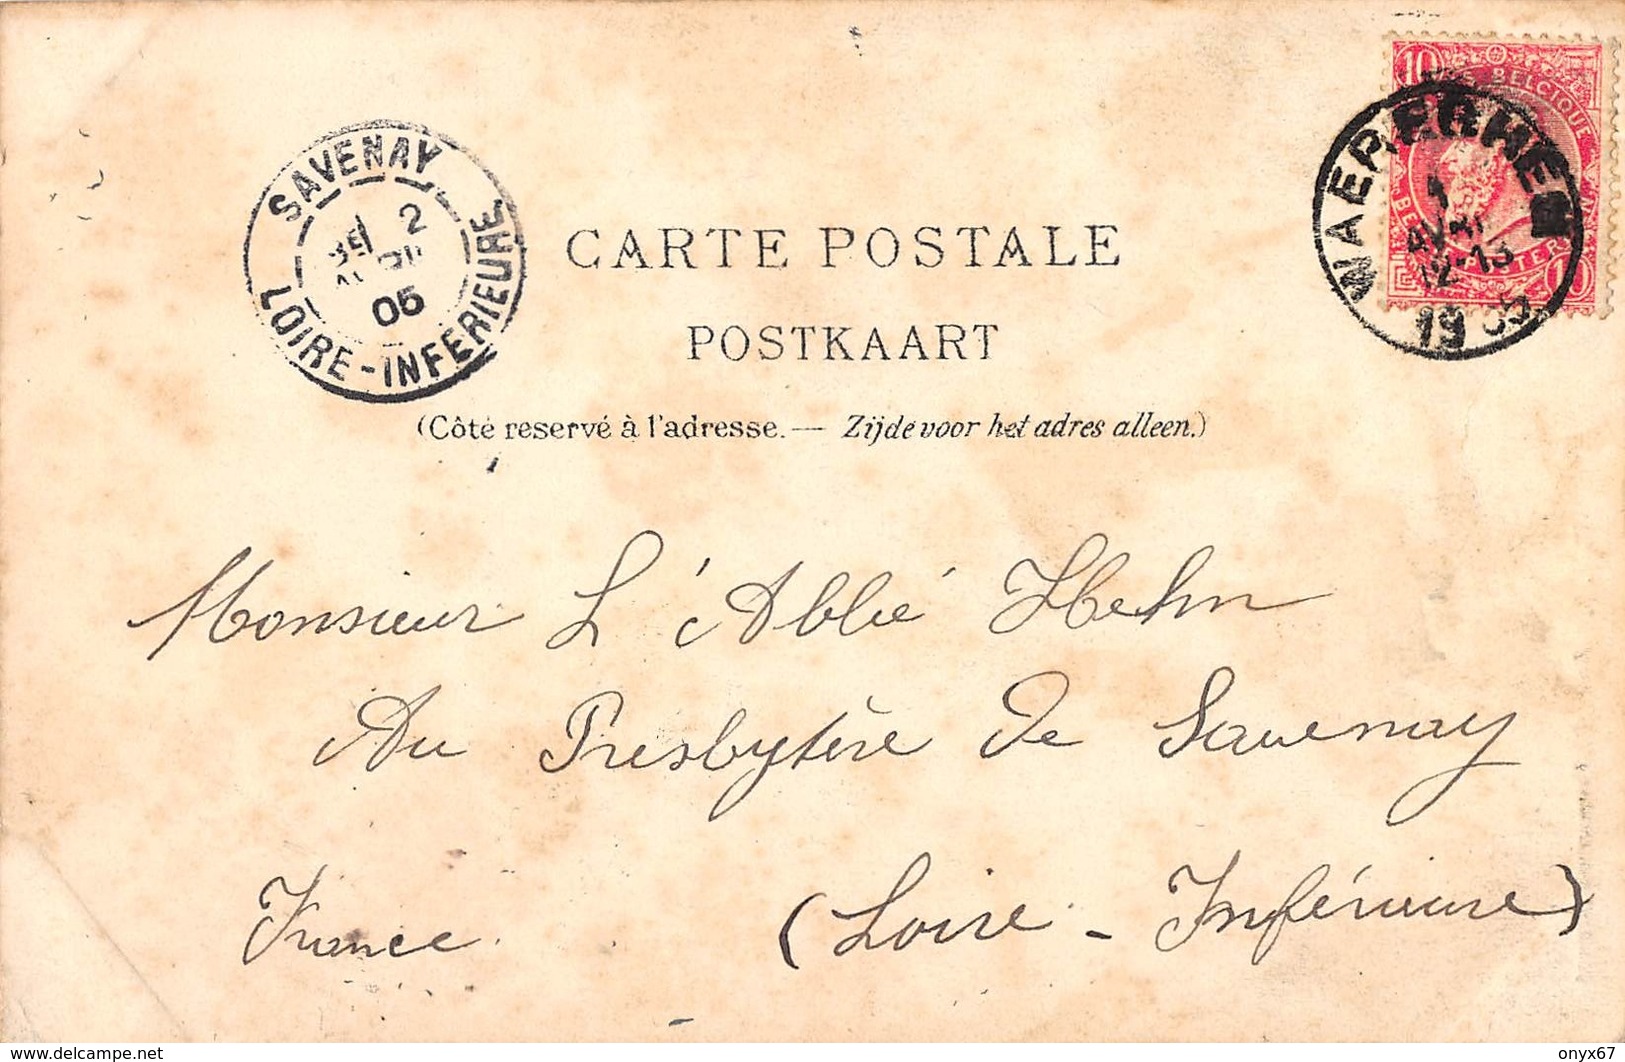 10 BELGIQUE
WAEREGHEM
1
AVRI
12-13
1905
10
SAVENAY
2
05
LOIRE-INFERIEURE
CARTE POSTALE
POSTKAART
(Côté reservé à l'adresse. — Zijde voor het adres alleen.)
Monsieur L'Abbé Hehn
Au Presbytère De Savenay
France. (Loire - Inférieure)
www.delcampe.net
onyx67